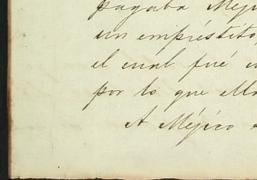 pagaba Méji
un empréstito,
el cual fué
por lo que ella
A Méjico